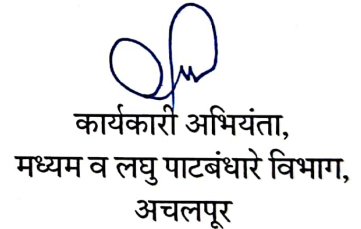 कार्यकारी अभियंता,
मध्यम व लघु पाटबंधारे विभाग,
अचलपूर